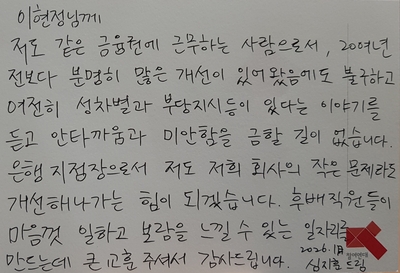 이현정님께
저도 같은 금융권에 근무하는 사람으로서, 20여년
전보다 분명히 많은 개선이 있어왔음에도 불구하고
여전히 성차별과 부당지시등이 있다는 이야기를
듣고 안타까움과 미안함을 금할 길이 없습니다.
은행 지점장으로서 저도 저희 회사의 작은 문제라도
개선해나가는 힘이 되겠습니다. 후배직원들이
마음껏 일하고 보람을 느낄 수 있는 일자리를
만드는데 큰 교훈 주셔서 감사드립니다.
2026. 1월
드림